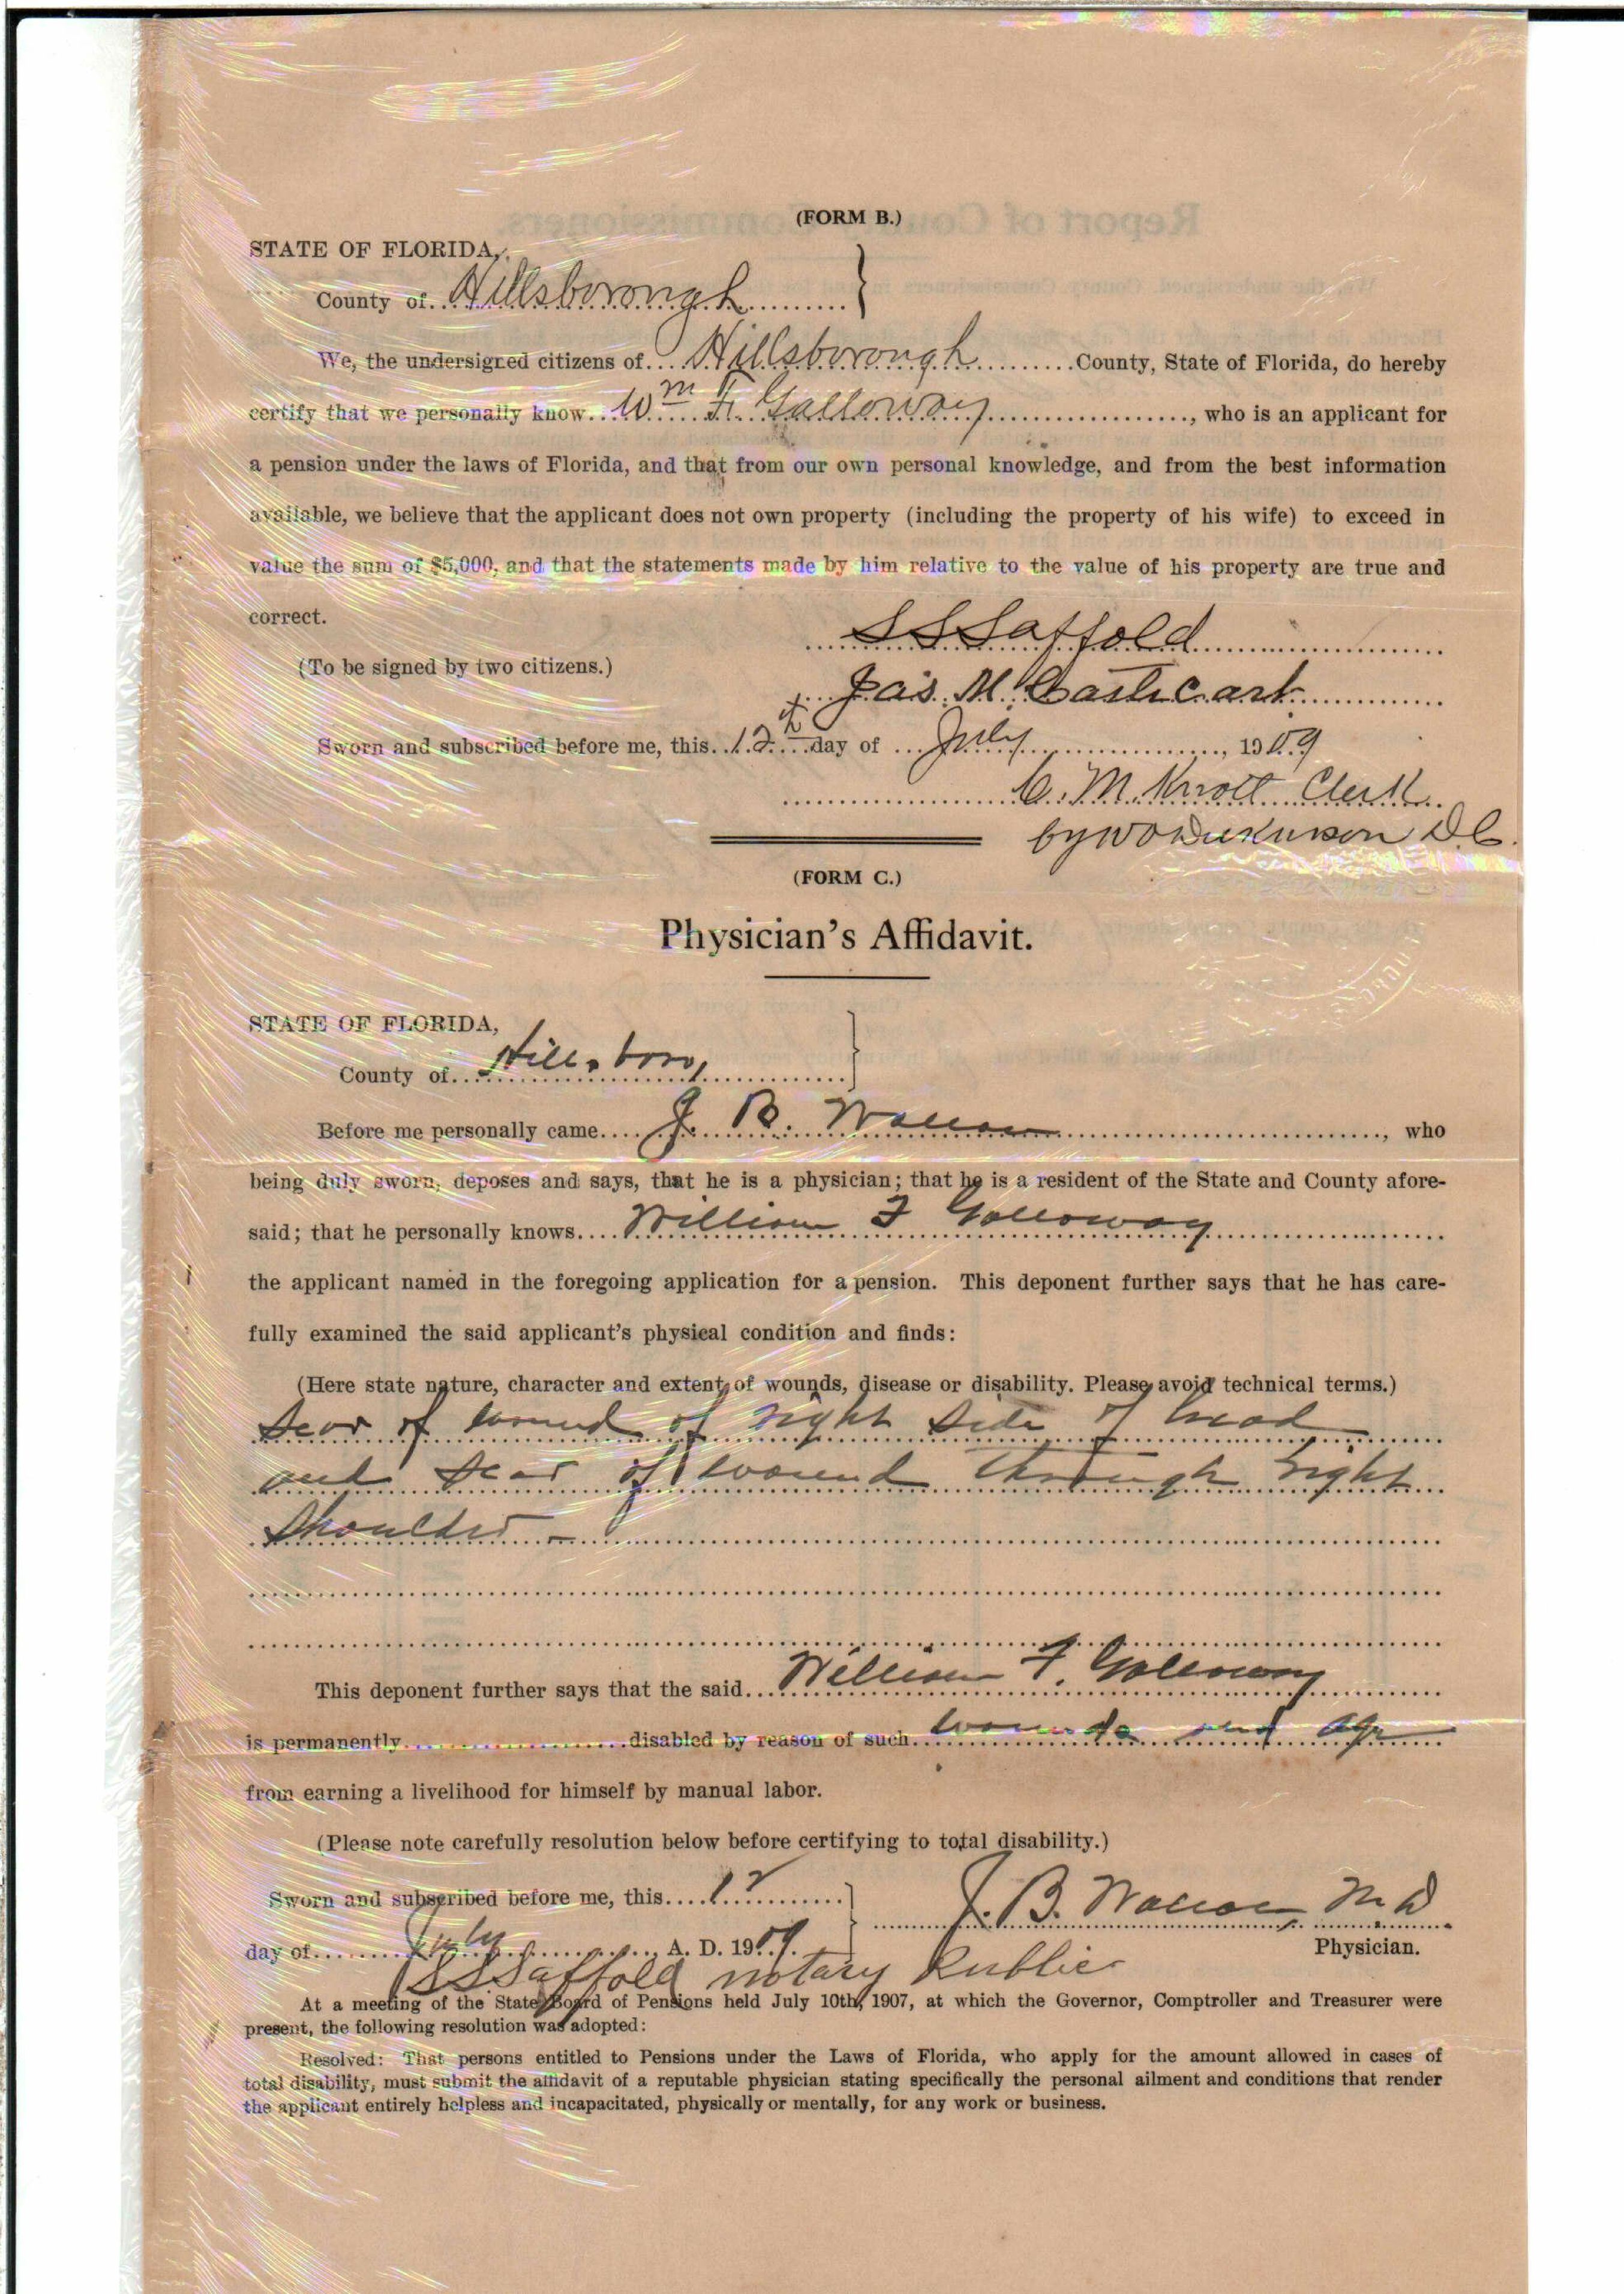 (FORM B.)
STATE OF FLORIDA,
County of Hillsborough
We, the undersigned citizens of Hillsborough County, State of Florida, do hereby
certify that we personally know Wm F. Galloway, who is an applicant for
a pension under the laws of Florida, and that from our own personal knowledge, and from the best information
available, we believe that the applicant does not own property (including the property of his wife) to exceed in
value the sum of $5,000, and that the statements made by him relative to the value of his property are true and
correct.
SSSaffold
(To be signed by two citizens.)
Jas. M. Cathcart
Sworn and subscribed before me, this 12th day of July, 1909
C. M. Knott Clerk
by WO Dickinson D.C.
(FORM C.)
Physician's Affidavit.
STATE OF FLORIDA,
County of Hillsboro
Before me personally came J. B. Wallace, who
being duly sworn, deposes and says, that he is a physician; that he is a resident of the State and County afore-
said; that he personally knows William F Galloway
the applicant named in the foregoing application for a pension. This deponent further says that he has care-
fully examined the said applicant's physical condition and finds:
(Here state nature, character and extent of wounds, disease or disability. Please avoid technical terms.)
Scar of wound of right side of head
and scar of wound through right
shoulder -
This deponent further says that the said William F. Galloway
is permanently disabled by reason of such wounds and age
from earning a livelihood for himself by manual labor.
(Please note carefully resolution below before certifying to total disability.)
Sworn and subscribed before me, this 12
J. B. Wallace M D
day of July A. D. 1909.
Physician.
SSSaffold notary Public
At a meeting of the State Board of Pensions held July 10th, 1907, at which the Governor, Comptroller and Treasurer were
present, the following resolution was adopted:
Resolved: That persons entitled to Pensions under the Laws of Florida, who apply for the amount allowed in cases of
total disability, must submit the affidavit of a reputable physician stating specifically the personal ailment and conditions that render
the applicant entirely helpless and incapacitated, physically or mentally, for any work or business.